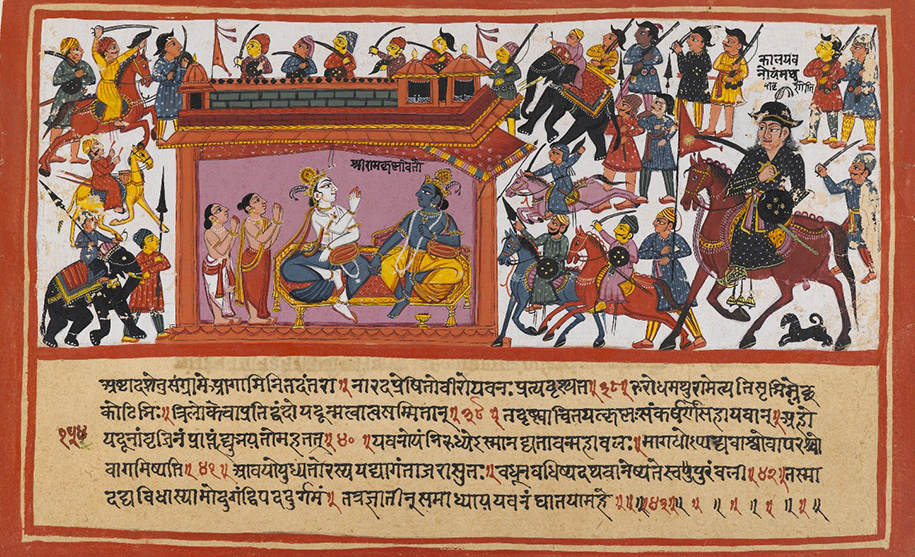 श्रीरामकृष्णौवतौ
कालयव
नोयंमथु
अष्टादशेतुसंग्रामेआगामिनितदंतरा॥नारदप्रेषितोवीरोयवनःप्रत्यदृश्यत॥३८॥रुरोधमथुरामेत्यतिसृभिर्म्लेछ
कोटिभिः॥नृलोकेचाप्रतिद्वंद्वोयदून्श्रुत्वात्मसम्मितान्॥३९॥तंदृष्ट्वाचिंतयत्कृष्णःसंकर्षणसहायवान्॥अहो
यदूनांवृजिनंप्राप्तंह्युभयतोमहत्॥४०॥यवनोयंनिरुंधेऽस्मानद्यतावन्महाबलः॥मागधोप्यद्यवाश्वोवापरश्वो
वागमिष्यति॥४१॥आवयोयुध्यतोरस्ययद्यागंताजरासुतः॥बंधून्वधिष्यत्यथवानेष्यतेस्वपुरंबली॥४२॥तस्मा
दद्यविधास्यामोदुर्गंद्विपददुर्गमं॥तत्रज्ञातीन्समाधाययवनंघातयामहे॥४३॥